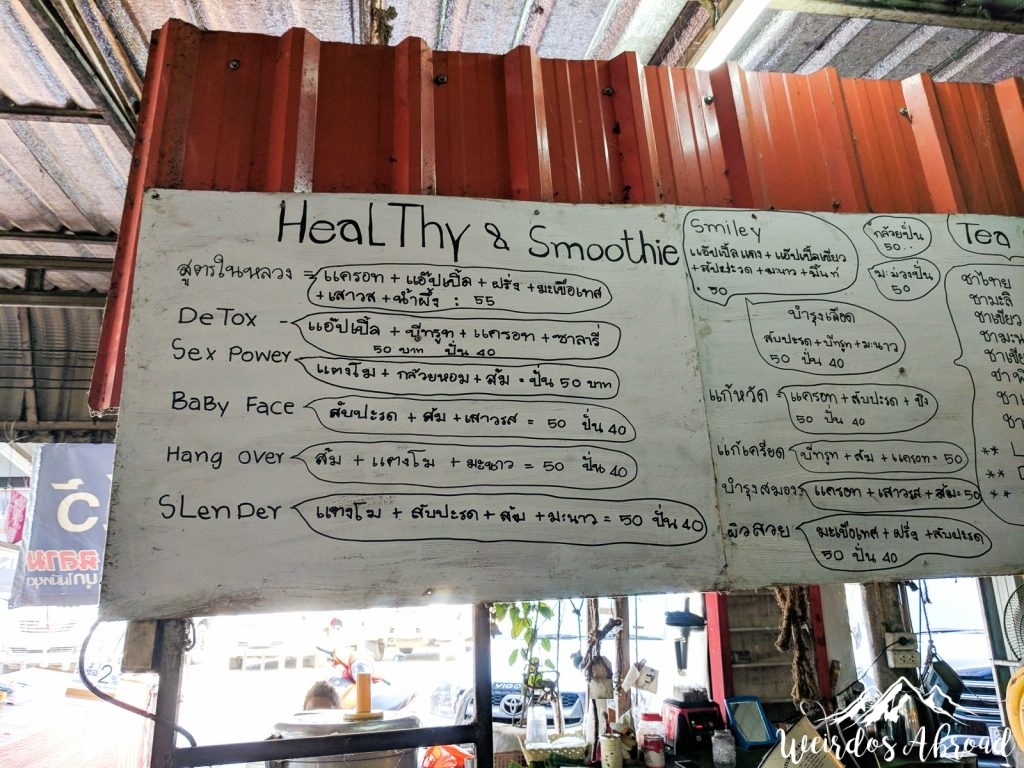 HeaLThy & Smoothie
สูตรในหลวง = แครอท + แอ๊ปเปิ้ล + ฝรั่ง + มะเขือเทศ
+ เสาวรส + น้ำผึ้ง : 55
DeTox - แอ๊ปเปิ้ล + บีทรูท + แครอท + ซาลารี่
50 บาท ปั่น 40
Sex Power แตงโม + กล้วยหอม + ส้ม = ปั่น 50 บาท
BaBy Face สับปะรด + ส้ม + เสาวรส = 50 ปั่น 40
Hang over ส้ม + แตงโม + มะนาว = 50 ปั่น 40
SLenDer แตงโม + สับปะรด + ส้ม + มะนาว = 50 ปั่น 40
Smiley
แอ๊ปเปิ้ลแดง + แอ๊ปเปิ้ลเขียว
+ สับปะรด + มะนาว + มิ้นท์
: 50
กล้วยปั่น
50..
มะม่วงปั่น
50
บำรุงเลือด
สับปะรด + บีทรูท + มะนาว
50 ปั่น 40
แก้หวัด แครอท + สับปะรด + ขิง
50 ปั่น 40
แก้เครียด บีทรูท + ส้ม + แครอท = 50
บำรุงสมอง แครอท + เสาวรส + ส้ม = 50
ผิวสวย มะเขือเทศ + ฝรั่ง + สับปะรด
50 ปั่น 40
Tea
ชาไทย
ชามะลิ
ชาเขียว
ชามะน
ชาเขีย
**
**
**
VIGO
Weirdos Abroad